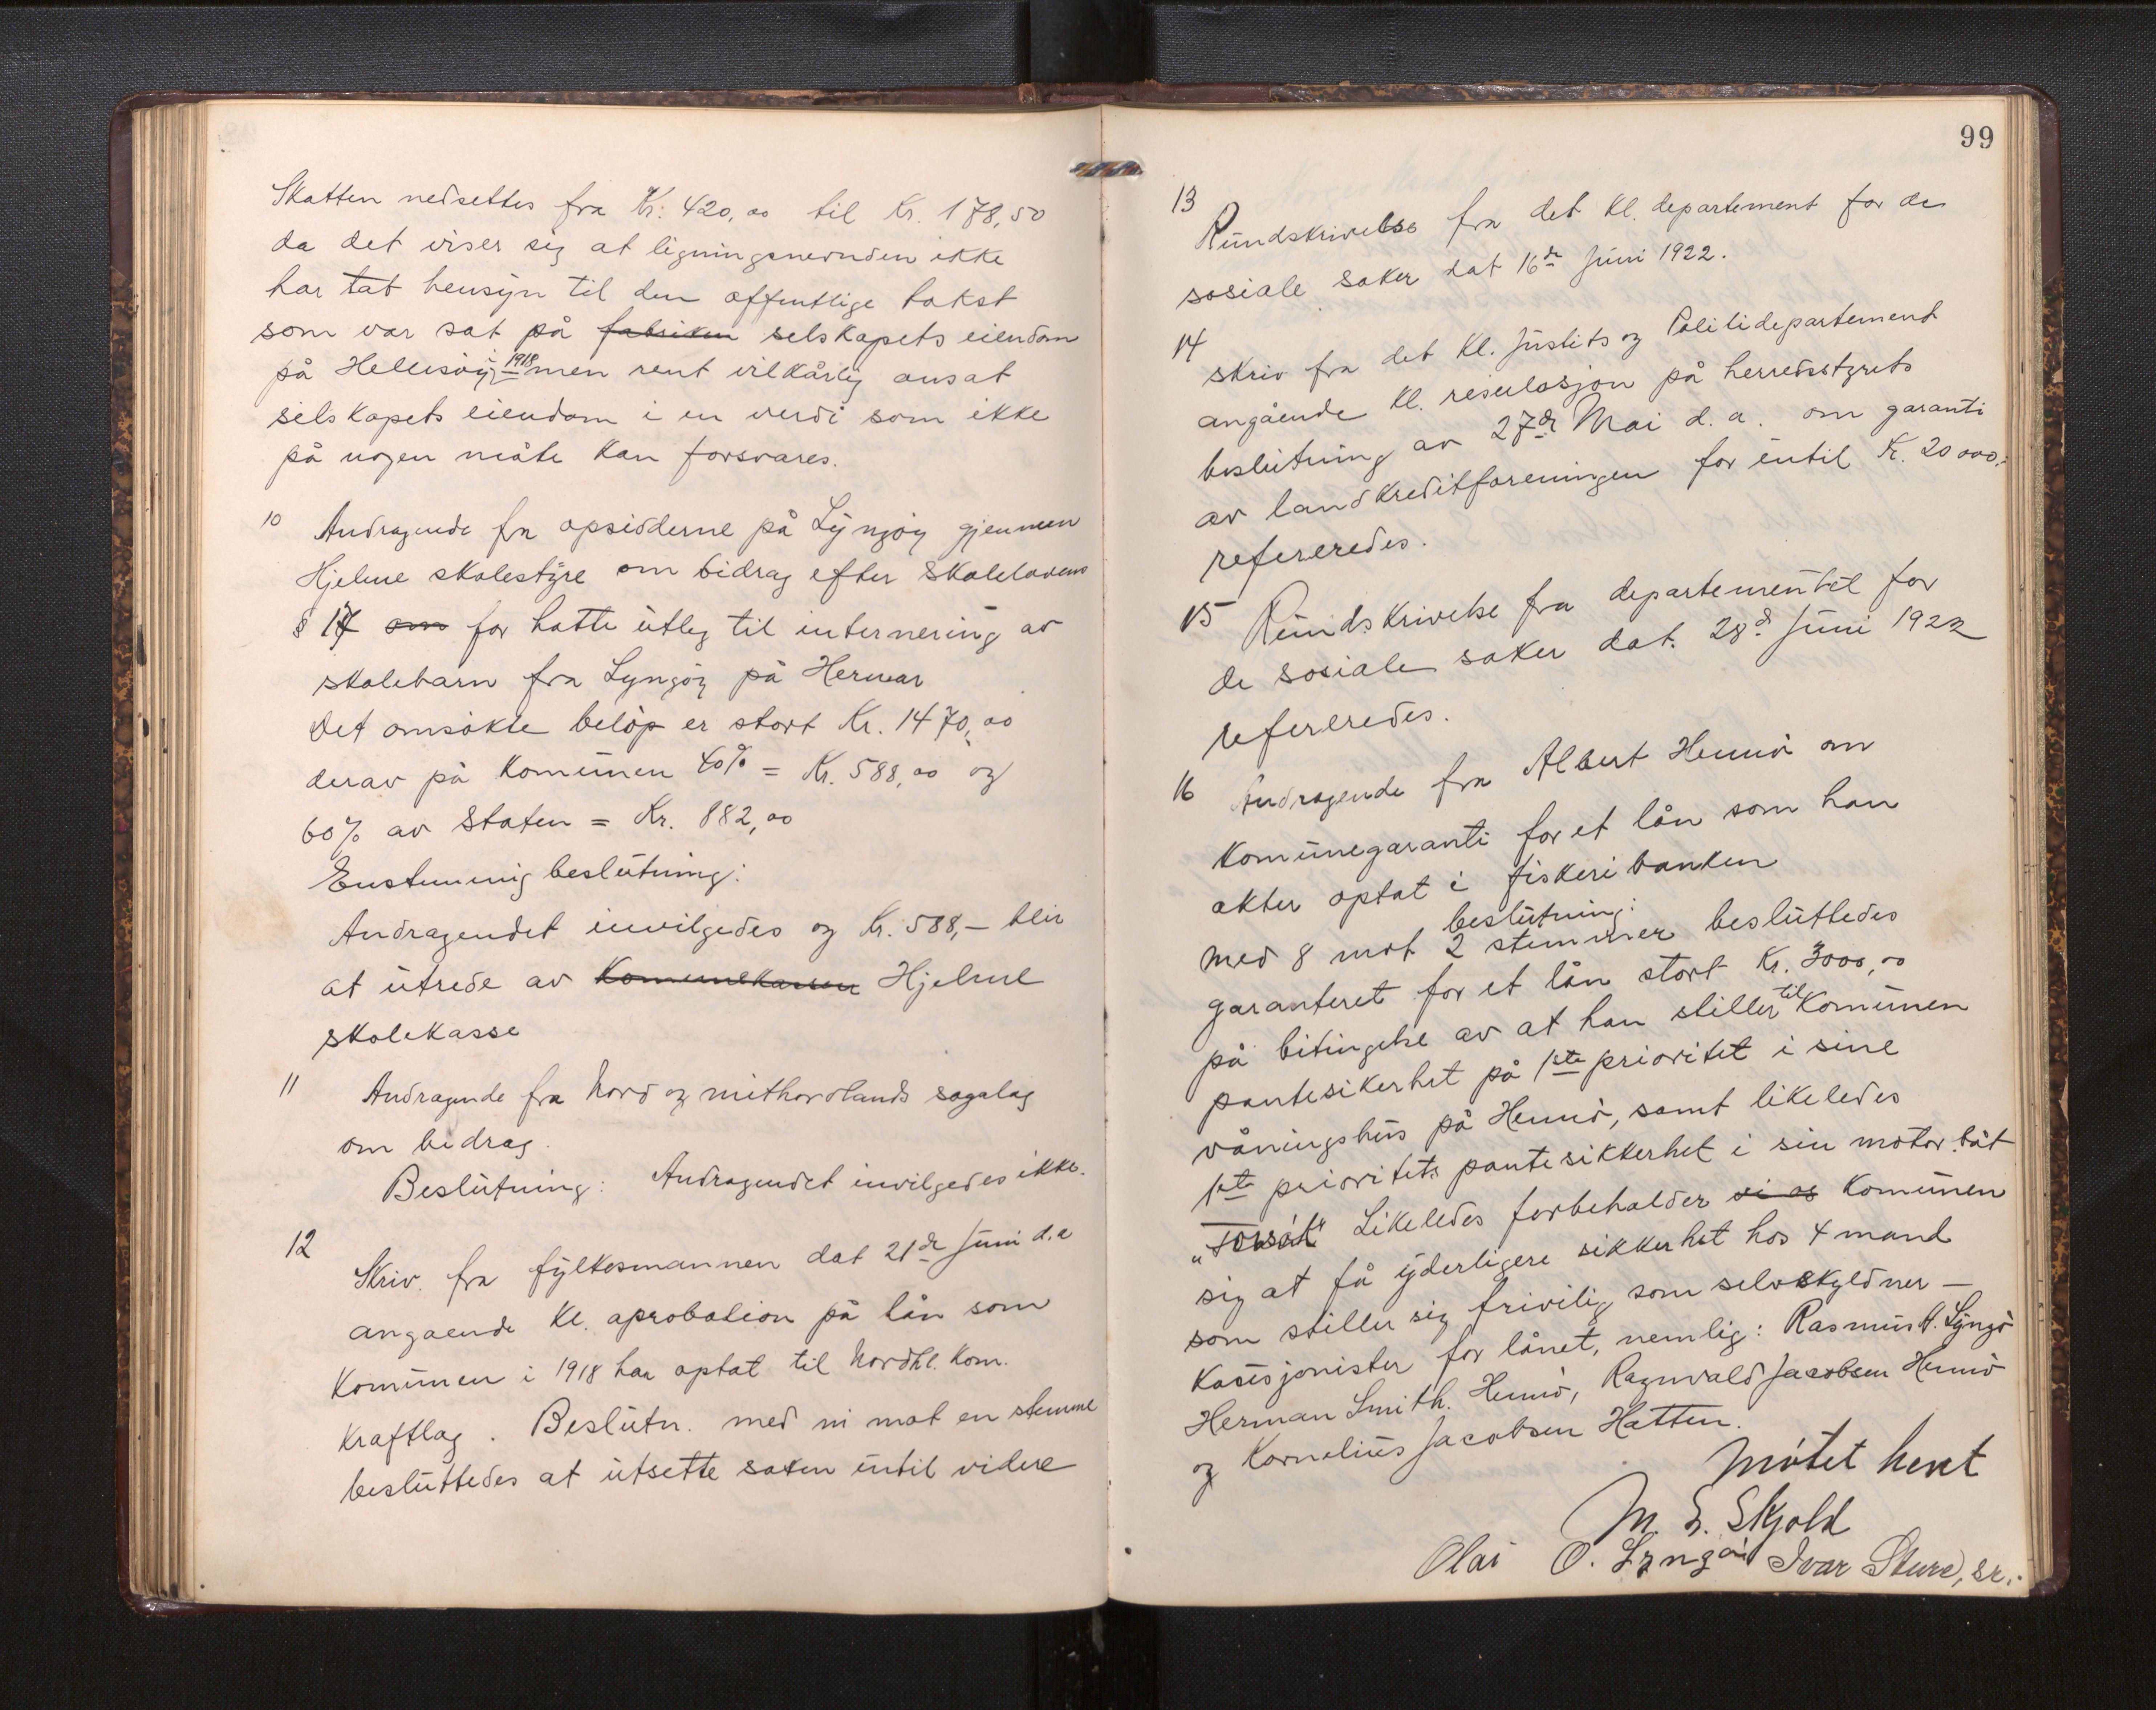 Skatten nedsettes fra Kr: 420,00 til Kr. 178,50
da det viser sig at ligningsnevnden ikke
har tat hensyn til den offentlige takst
som var sat på fabriken selskapets eiendom
på Hellisøy i 1918 men rent vilkårlig ansat
selskapets eiendom i en verdi som ikke
på nogen måte kan forsvares.
10 Andragende fra opsidderne på Lyngøy gjennem
Hjelme skolestyre om bidrag efter Skolelovens
§ 17 om for hatte utleg til internering av
skolebarn fra Lyngøy på Hernar
Det omsøkte beløp er stort Kr. 1470,00
derav på Komunen 40% = Kr. 588,00 og
60% av Staten = Kr. 882,00
Enstemmig beslutning:
Andragendet invilgedes og Kr. 588,- blir
at utrede av Komunekassen Hjelme
skolekasse
11 Andragende fra Nord og mithordlands sogalag
om bidrag.
Beslutning: Andragendet invilgedes ikke.
12
Skriv. fra fylkesmannen dat 21de Juni d.a
angaende Kl. aprobation på lån som
Komunen i 1918 har optat til Nordhl. Kom.
Kraftlag. Beslutn. med ni mot en stemme
besluttedes at utsette saken intil videre
99
13
Rundskrivelse fra det kl. departement for de
sosiale saker dat 16de Juni 1922.
14
skriv fra det Kl. Justits og Politidepartement
angående Kl. resulosjon på herredsstyrets
beslutning av 27de Mai d.a. om garanti
av landkreditforeningen for intil Kr. 20000,-
refereredes.
15 Rundskrivelse fra departementet for
de sosiale saker dat. 28d Juni 1922
refereredes.
16 Andragende fra Albert Hennø om
Komunegaranti for et lån som han
akter optat i fiskeribanken
beslutning:
Med 8 mot 2 stemmer besluttedes
garanteret for et lån stort Kr. 3000,00
på bitingelse av at han stiller til Komunen
pantesikerhet på 1ste prioritet i sine
våningshus på Hennø, samt likeledes
1ste prioritets pantesikkerhet i sin motorbåt
"Forsøk" Likeledes forbeholder vi os Komunen
sig at få yderligere sikkerhet hos 4 mand
som stiller sig frivilig som selvskyldner-
Kausjonister for lånet, nemlig: Rasmus A. Lyngø
Herman Smith. Hennø, Ragnvald Jacobsen Hennø
og Kornelius Jacobsen Hatten.
Møtet hevt
M. S. Skjold
Olai O. Lyngøi Ivar Sture, sr.